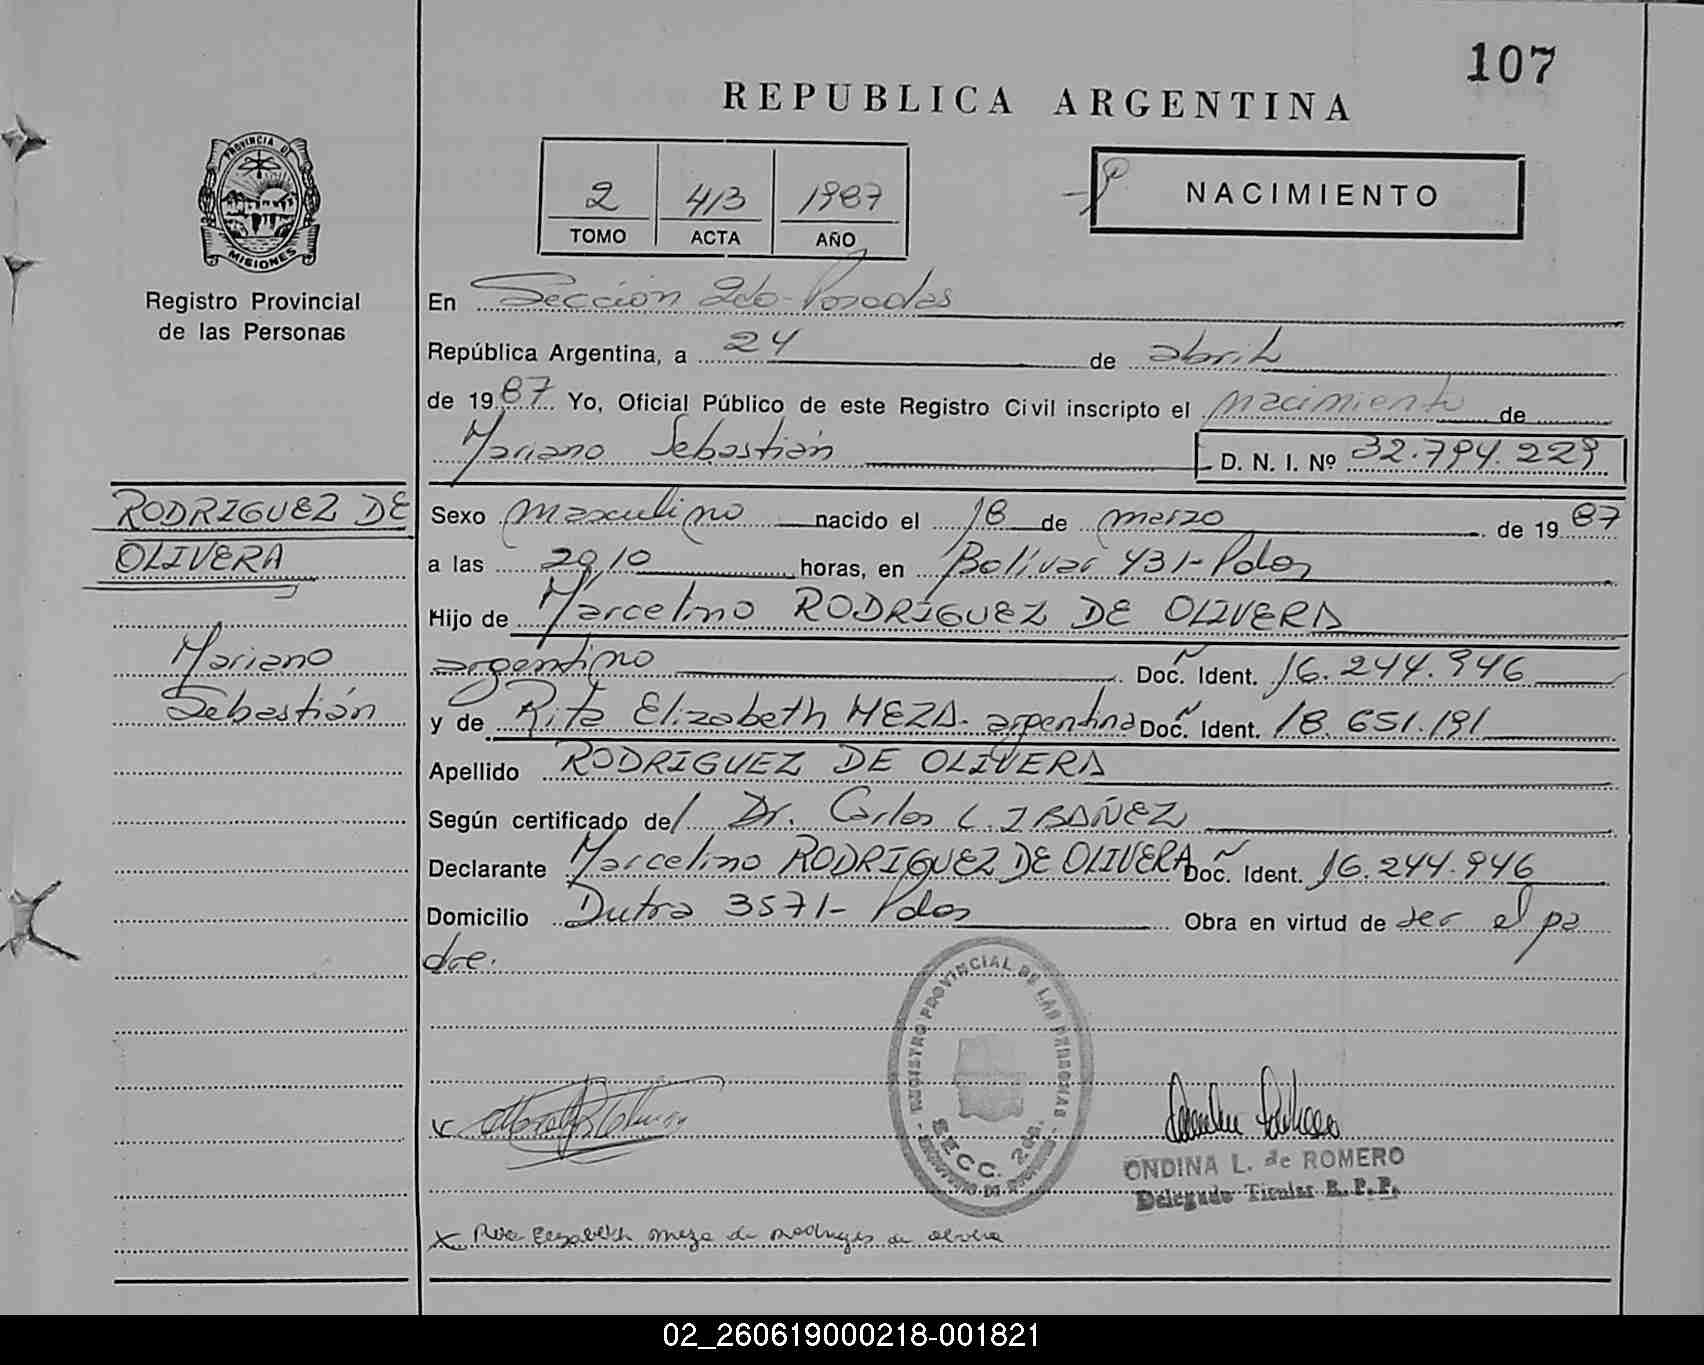 107
REPUBLICA ARGENTINA
PROVINCIA DE
MISIONES
Registro Provincial
de las Personas
2 413 1987
TOMO ACTA AÑO
NACIMIENTO
En Sección 2da-Posadas
República Argentina, a 24 de abril
de 1987 Yo, Oficial Público de este Registro Civil inscripto el nacimiento de
Mariano Sebastián D. N. I. Nº 32.794.229
RODRIGUEZ DE
OLIVERA
Mariano
Sebastián
Sexo masculino nacido el 18 de marzo de 1987
a las 20,10 horas, en Bolívar 431-Pdas
Hijo de Marcelino RODRIGUEZ DE OLIVERA
argentino Doc. Ident. 16.244.946
y de Rita Elizabeth MEZA- argentina Doc. Ident. 18.651.191
Apellido RODRIGUEZ DE OLIVERA
Según certificado del Dr. Carlos L. IBAÑEZ
Declarante Marcelino RODRIGUEZ DE OLIVERA Doc. Ident. 16.244.946
Domicilio Dutra 3571- Pdas Obra en virtud de ser el pa
dre.
REGISTRO PROVINCIAL DE LAS PERSONAS
SECC. 2da.
ONDINA L. de ROMERO
Delegado Titular R. P. P.
x Rita Elizabeth meza de rodriguez de olivera
02_260619000218-001821